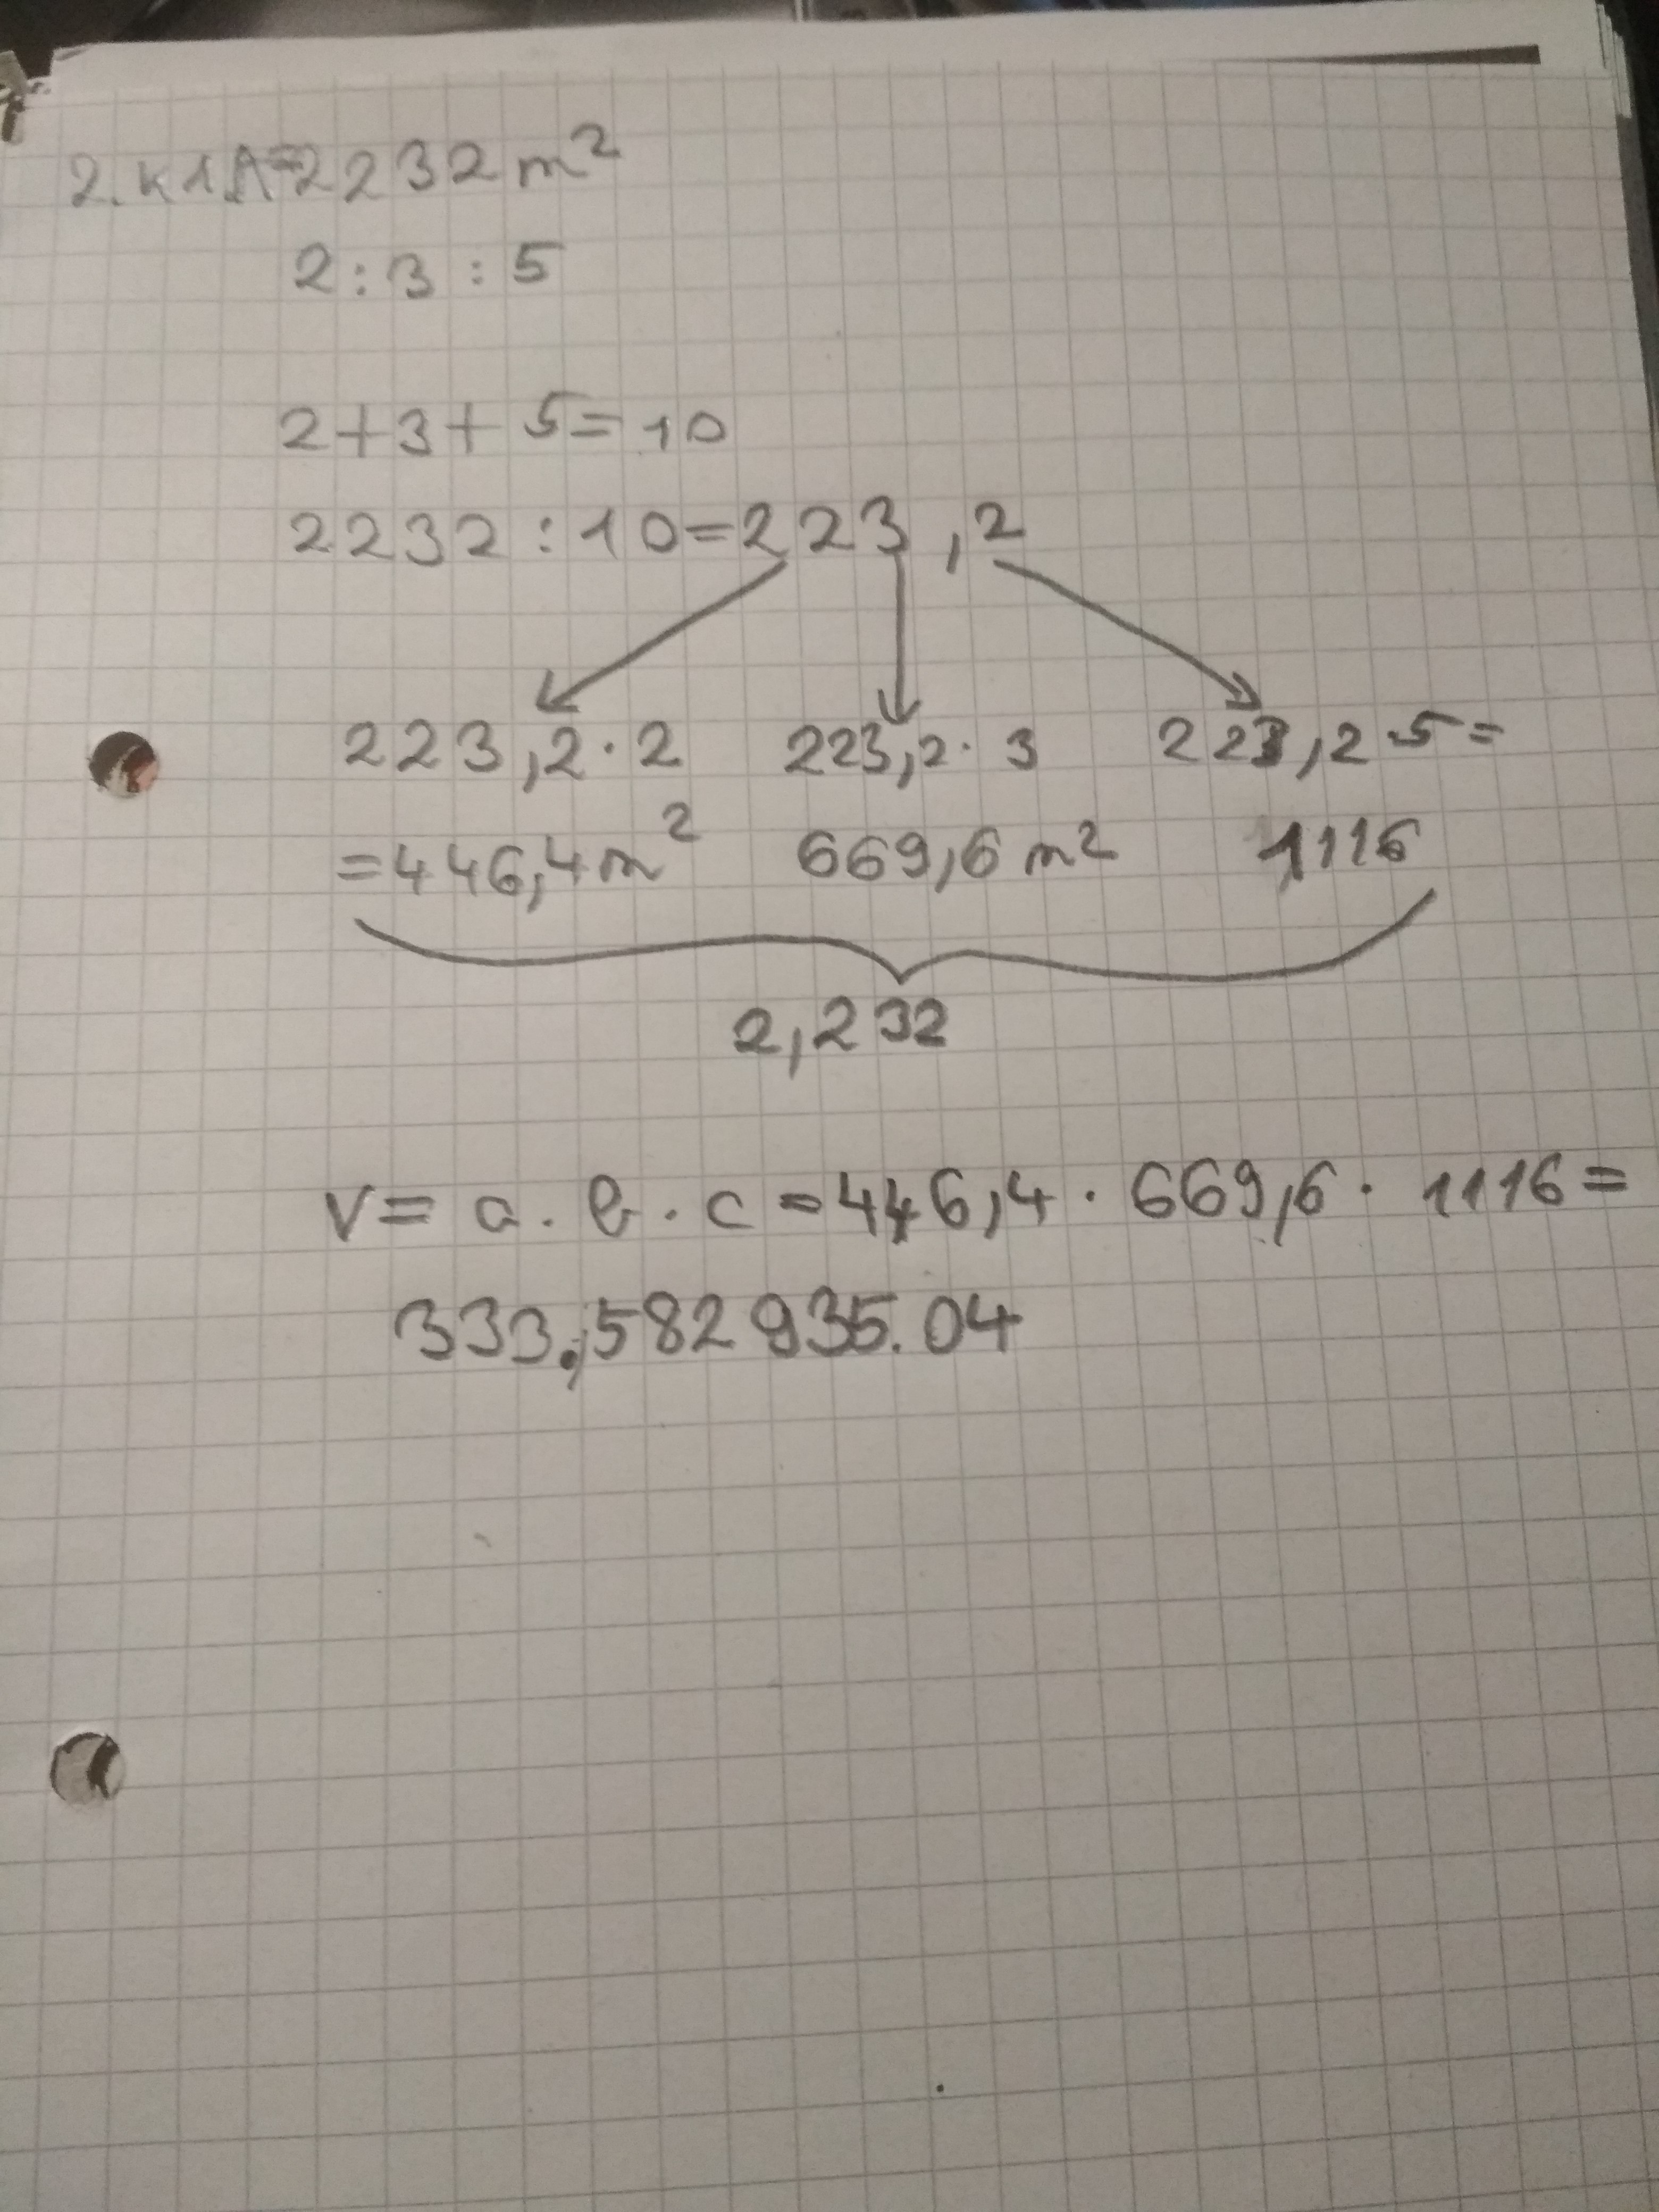 2. 2232 m²
2 : 3 : 5
2+3+5=10
2232 : 10=223,2
223,2·2 223,2·3 223,2·5=
=446,4m² 669,6m² 1116
2,232
V= a · b · c =446,4 · 669,6 · 1116=
333,582935.04